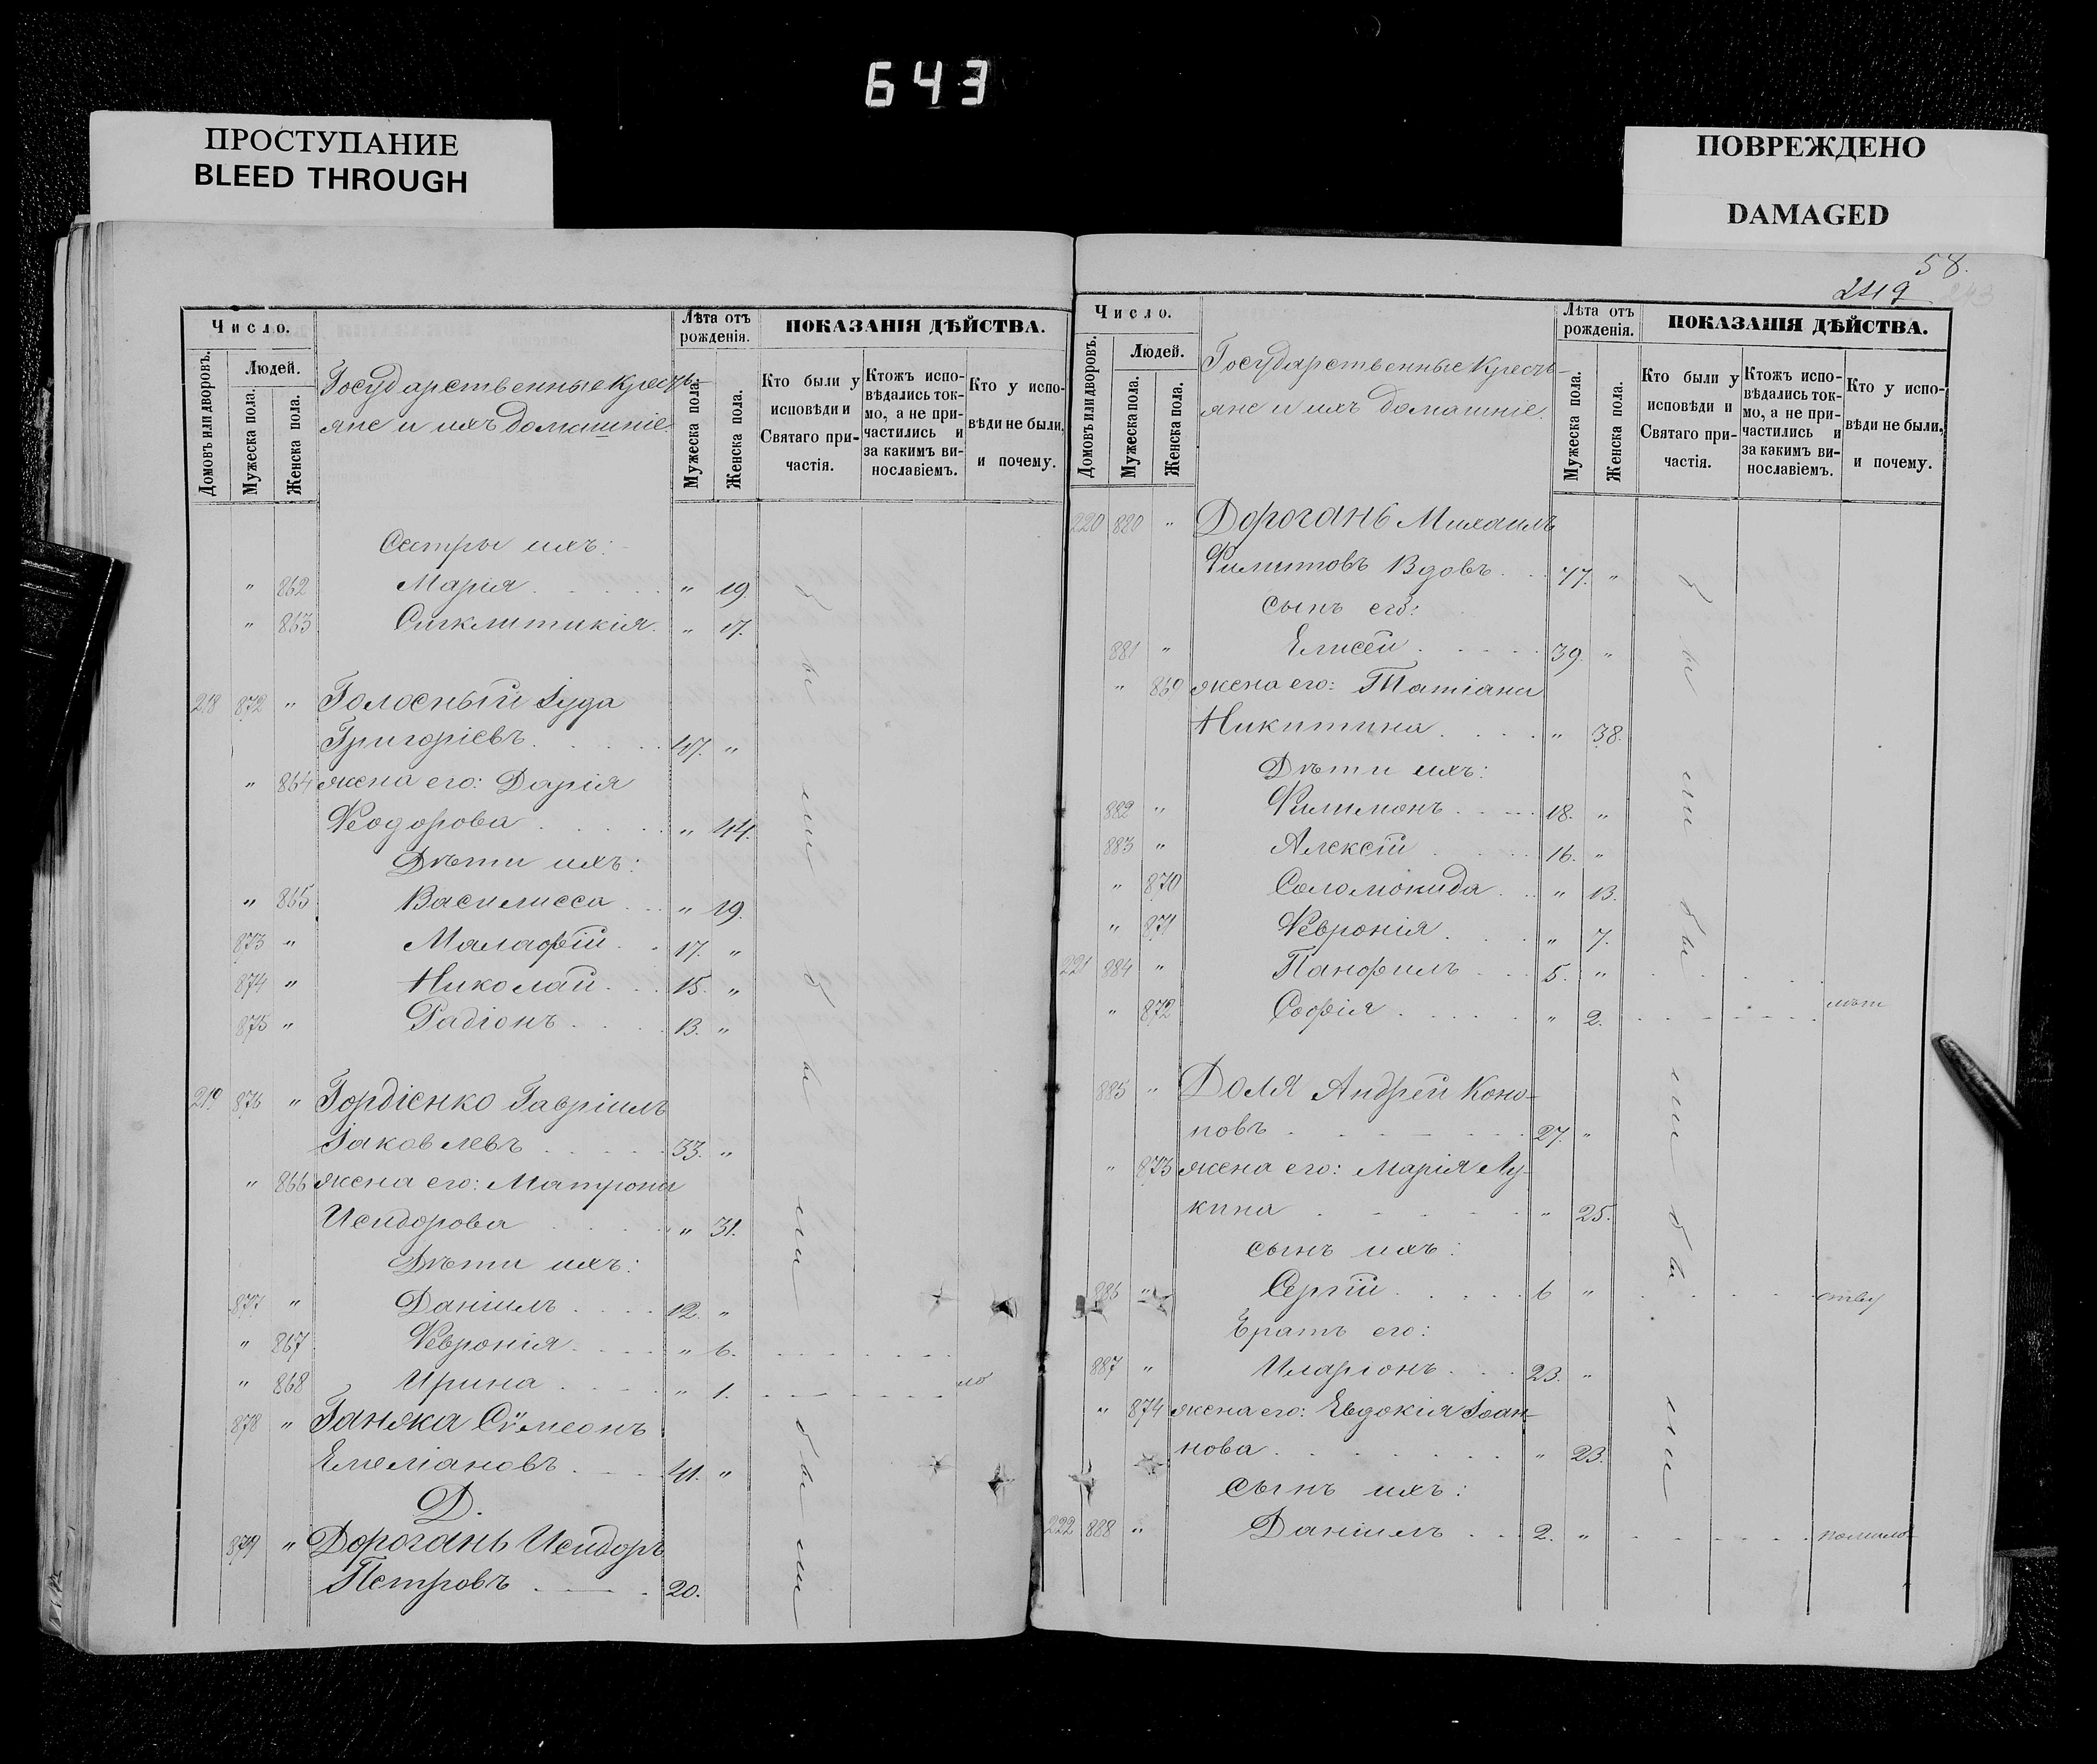 643
ПРОСТУПАНИЕ
BLEED THROUGH
ПОВРЕЖДЕНО
DAMAGED
58.
249
Число.
Людей.
Домовъ или дворовъ.
Мужеска пола.
Женска пола.
Государственные Кресть-
яне и ихъ домашніе.
Лѣта отъ рожденія.
Мужеска пола.
Женска пола.
ПОКАЗАНІЯ ДѢЙСТВА.
Кто были у исповѣди и Святаго при-частія.
Ктожъ испо-вѣдались ток-мо, а не при-частились и за какимъ ви-нославіемъ.
Кто у испо-вѣди не были, и почему.
Сестры ихъ:
" 862 Марія " 19.
" 863 Сигклитикія. " 17.
218 872 " Голосный Іуда
Григоріевъ. 47. "
" 864 жена его: Дарія
Ѳеодорова " 44.
Дѣти ихъ:
" 865 Василисса " 19.
873 " Малафій 17. "
874 " Николай 15. "
875 " Радіонъ 13. "
219 876 " Гордіенко Гавріилъ
Іаковлевъ 33. "
" 866 жена его: Матрона
Исидорова " 31.
Дѣти ихъ:
877 " Даніилъ 12. "
" 867 Ѳевронія " 6.
" 868 Ирина " 1. по
878 " Ганжа Сѵмеонъ
Емеліановъ 41. "
Д.
879 " Дорогань Исидоръ
Петровъ 20.
были были были
Число.
Людей.
Домовъ или дворовъ.
Мужеска пола.
Женска пола.
Государственные Кресть-
яне и ихъ домашніе.
Лѣта отъ рожденія.
Мужеска пола.
Женска пола.
ПОКАЗАНІЯ ДѢЙСТВА.
Кто были у исповѣди и Святаго при-частія.
Ктожъ испо-вѣдались ток-мо, а не при-частились и за какимъ ви-нославіемъ.
Кто у испо-вѣди не были, и почему.
220 880 " Дорогань Михаилъ
Филиповъ Вдовъ 77. "
сынъ его:
881 " Елисей 39. "
" 869 жена его: Татіана
Никитина " 38.
Дѣти ихъ:
882 " Филимонъ 18. "
883 " Алексій 16. "
" 870 Соломонида " 13.
" 871 Ѳевронія " 7.
221 884 " Панфилъ 5. "
" 872 Софія " 2. лѣт
885 " Доля Андрей Коно-
новъ 27. "
" 873 жена его: Марія Лу-
кина " 25.
сынъ ихъ:
886 " Сергій 6 " ству
Братъ его:
887 " Иларіонъ 23. "
" 874 жена его: Евдокія Іоан-
нова " 23.
сынъ ихъ:
222 888 " Даніилъ 2. " помало
были были